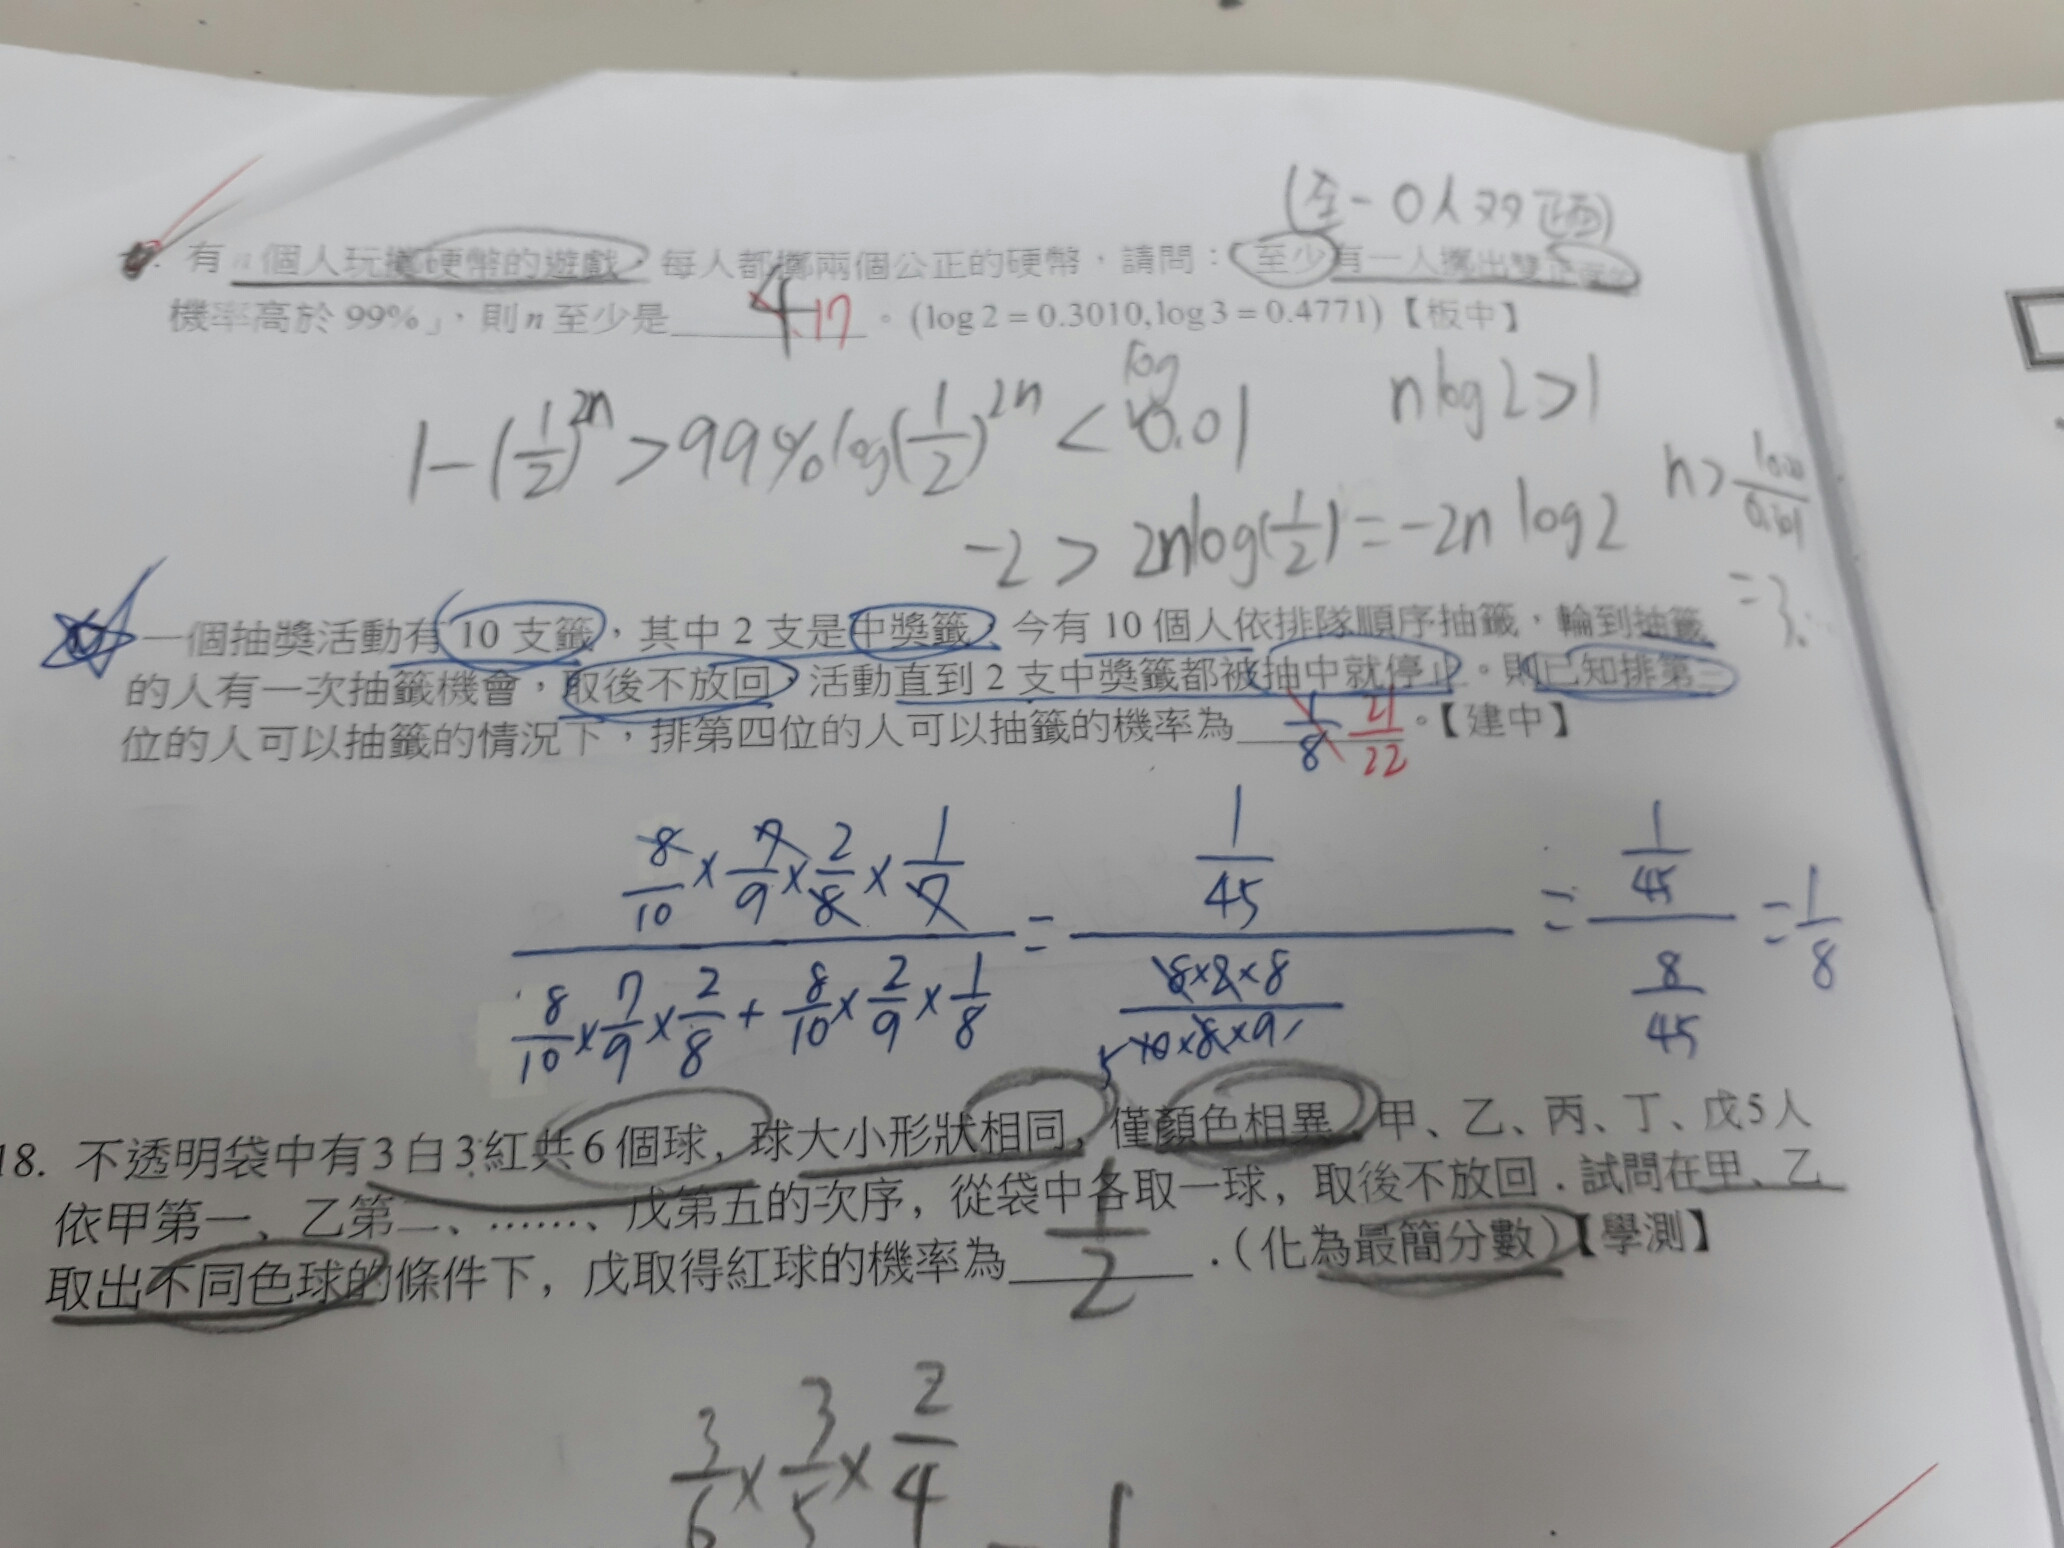 (全-0人双正面)
有n個人玩擲硬幣的遊戲，每人都擲兩個公正的硬幣，請問：「至少有一人擲出雙正面的
機率高於 99%」，則 n 至少是 4 17 。(log 2 = 0.3010, log 3 = 0.4771)【板中】
1-(1/2)^2n > 99% log(1/2)^2n < log 0.01
n log 2 > 1
-2 > 2n log(1/2) = -2n log 2
n >
= 3.
一個抽獎活動有 10 支籤，其中 2 支是中獎籤，今有 10 個人依排隊順序抽籤，輪到抽籤
的人有一次抽籤機會，取後不放回，活動直到 2 支中獎籤都被抽中就停止。則已知排第三
位的人可以抽籤的情況下，排第四位的人可以抽籤的機率為 1/8 21/22 。【建中】
8/10 × 7/9 × 2/8 × 1/7
= 1/45 = 1/45 = 1/8
8/10 × 7/9 × 2/8 + 8/10 × 2/9 × 1/8
8×2×8 / 10×8×9 5
8/45
18. 不透明袋中有3白3紅共6個球，球大小形狀相同，僅顏色相異．甲、乙、丙、丁、戊5人
依甲第一、乙第二、……、戊第五的次序，從袋中各取一球，取後不放回．試問在甲、乙
取出不同色球的條件下，戊取得紅球的機率為 1/2 ．（化為最簡分數）【學測】
3/6 × 3/5 × 2/4